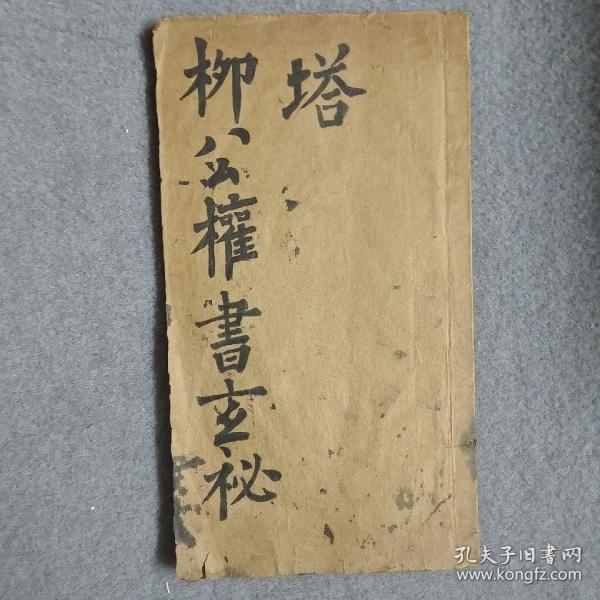 柳公權書玄祕
塔
孔夫子旧书网
www.kongfz.com